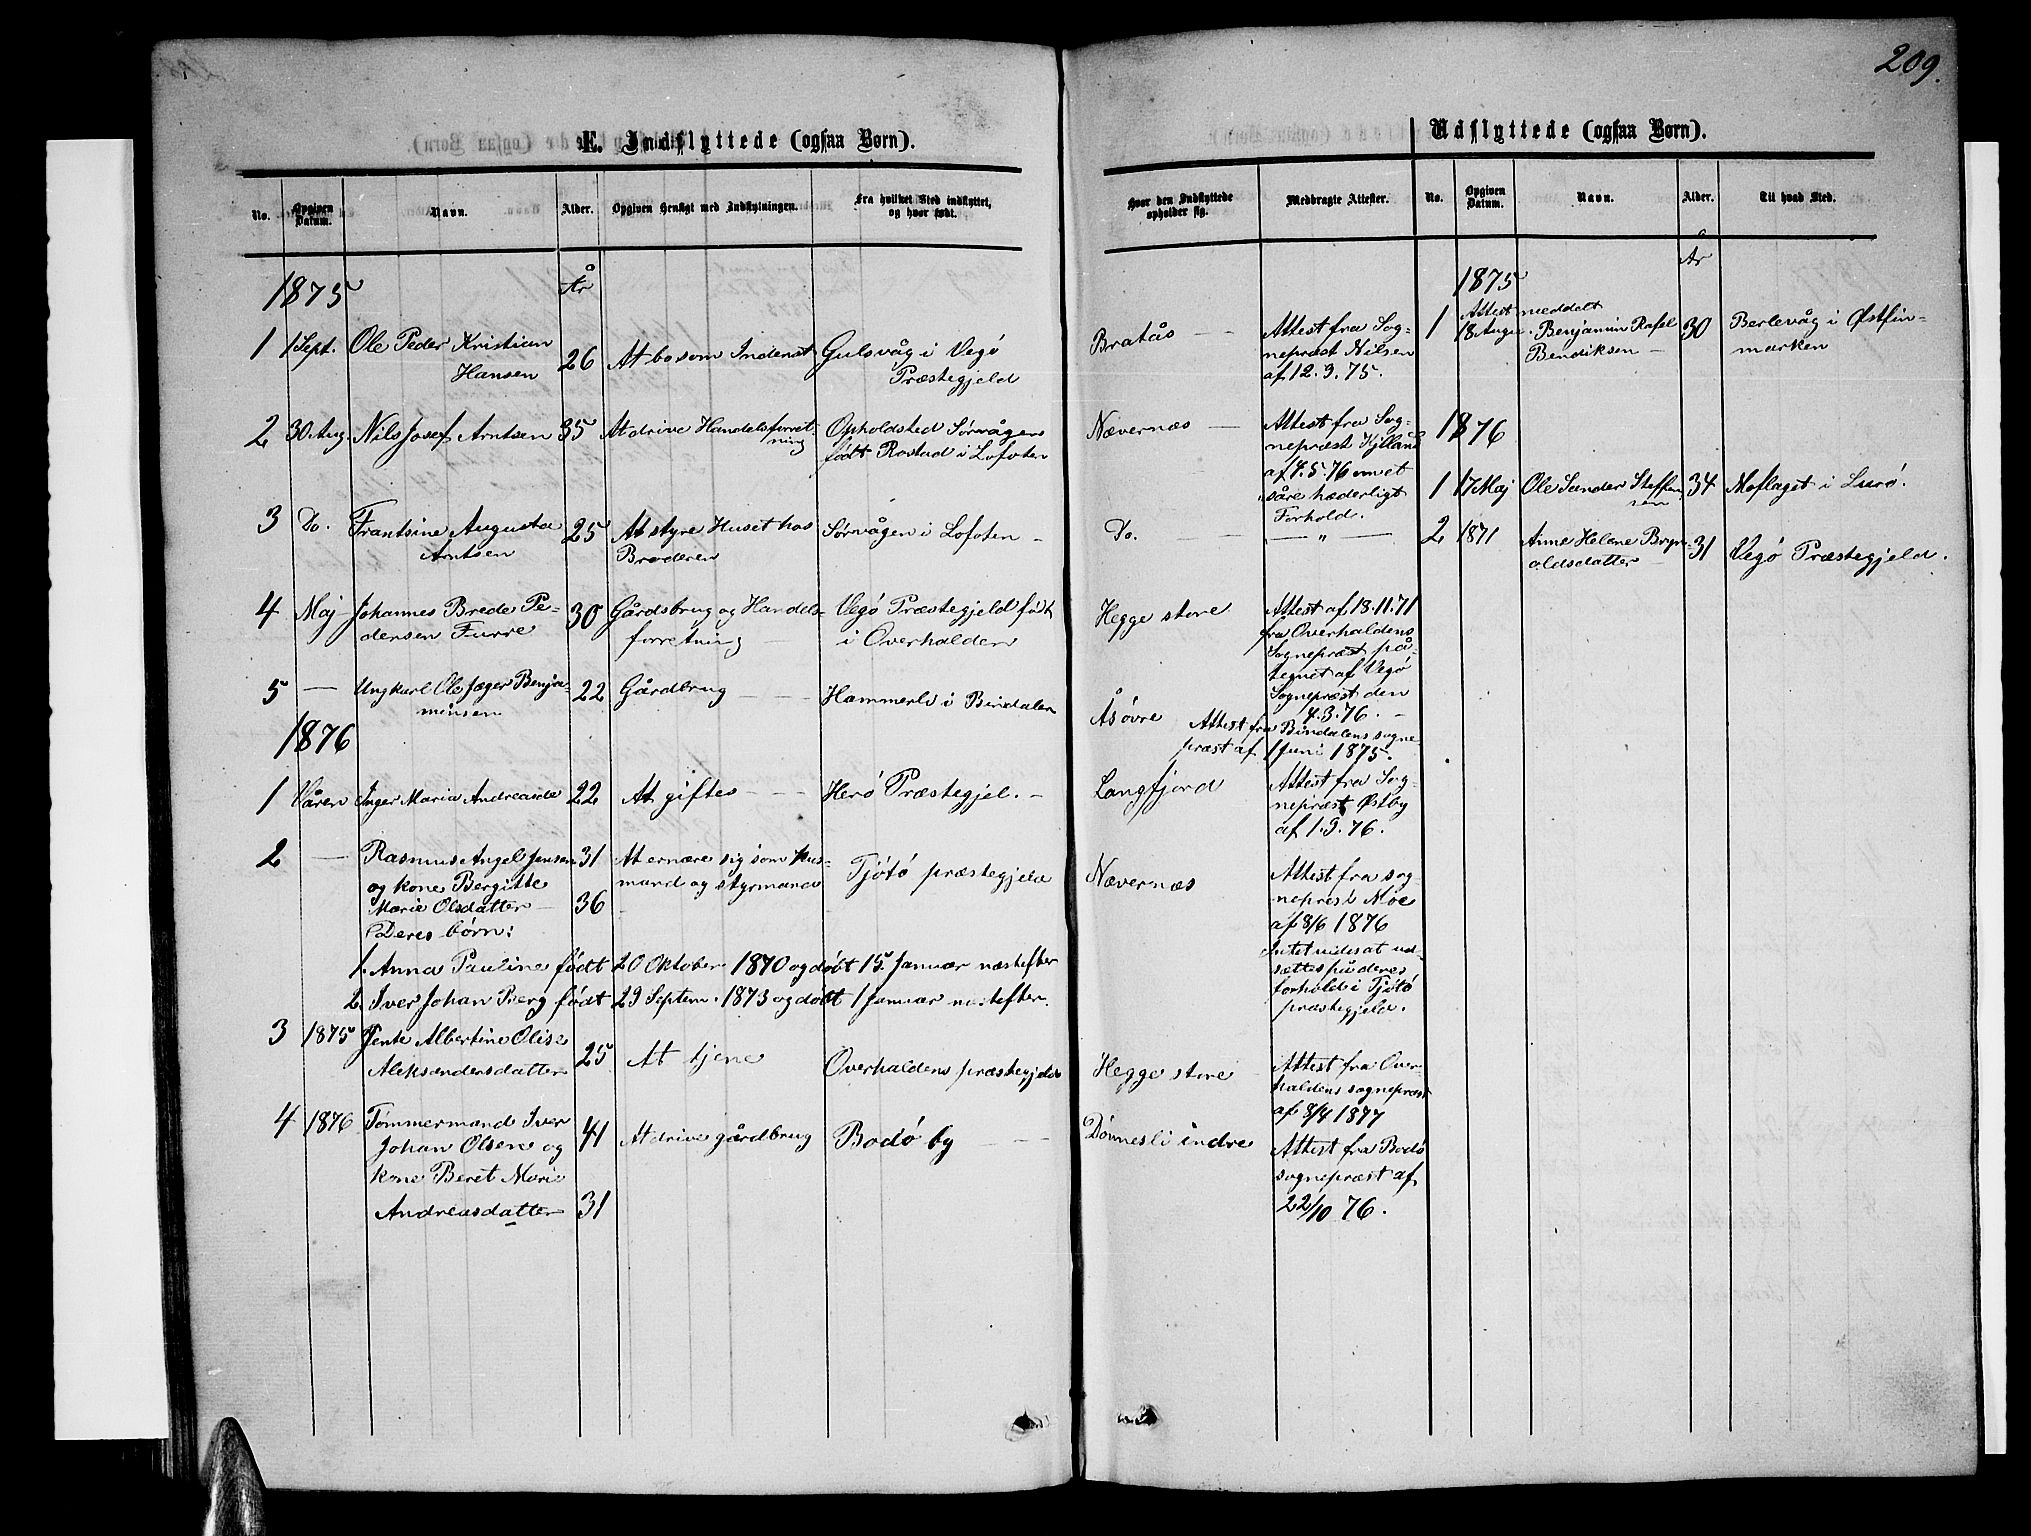 209.
E. Indflyttede (ogsaa Børn).
No.
Opgiven Datum.
Navn.
Alder.
Opgiven Hensigt med Indflytningen.
Fra hvilket Sted indflyttet,
og hvor født.
Hvor den Indflyttede
opholder sig.
Medbragte Attester.
1875
År
1 1 Sept. Ole Peder Kristian
Hansen
26 At bo som Inderst Gulsvåg i Vegø
Præstegjeld
Bratås
Attest fra Sog-
nepræst Nilsen
af 12.9.75.
2 30 Aug. Nils Josef Arntsen 35 At drive Handelsforret-
ning
Opholdsted Sørvågen
født Rostad i Lofoten
Nævernæs
Attest fra Sog-
nepræst Kjelland
af 4.5.76 om et
såre hæderligt
Forhold.
3 Do. Frantsine Augusta
Arntsen
25 At styre Huset hos
Broderen
Sørvågen i Lofoten
Do. — " —
4 Maj Johannes Brede Pe-
dersen Furre
30 Gårdsbrug og Handels-
forretning
Vegø Præstegjeld født
i Overhalden
Hegge store
Attest af 13.11.71
fra Overhaldens
Sognepræst på-
tegnet af Vegø
Sognepræst den
4.3.76.
5 — Ungkarl Ole Jæger Benja-
minsen
22 Gårdbrug — Hammerli i Bindalen
Åsøvre Attest fra Bindalens sogne-
præst af 1 Juni 1875.
1876
1 Våren Inger Maria Andreasda 22 At giftes — Herø Præstegjel. —
Langfjord
Attest fra Sog-
nepræst Østby
af 1.9.76.
2 — Rasmus Angel Jensen 31
og kone Bergitte
Marie Olsdatter 36
Deres børn:
At ernære sig som hus-
mand og styrmand
Tjøtø præstegjeld
Nævernæs
Attest fra sog-
nepræst Moe
af 8/6 1876
Intet uidsat ud-
sættes på deres
forhold i Tjøtø
præstegjeld.
1. Anna Pauline født 20 Oktober 1870 og døbt 15 Januar næstefter
2. Iver Johan Berg født 29 Septem. 1873 og døbt 1 Januar næstefter.
3 1875 Jente Albertine Olise
Aleksandersdatter
25 At tjene Overhaldens præstegjeld
Hegge store
Attest fra Over-
haldens sognepræst
af 8/4 1877
4 1876 Tømmermand Iver
Johan Olsen og
kone Beret Marie
Andreasdatter
41
31
At drive gårdbrug Bodø by — —
Dønnesli indre
Attest fra Bodø
sognepræst af
22/10 76.
Udflyttede (ogsaa Børn).
No.
Opgiven Datum.
Navn.
Alder.
Til hvad Sted.
År
1875
Attest meddelt
1 18 Augu. Benjamin Rafel
Bendiksen —
30 Berlevåg i Østfin-
marken
1876
1 17 Maj Ole Sander Steffen-
sen
34 Moflaget i Lurø.
2 1871 Anne Helene Bryn-
oldsdatter
31 Vegø Præstegjeld.